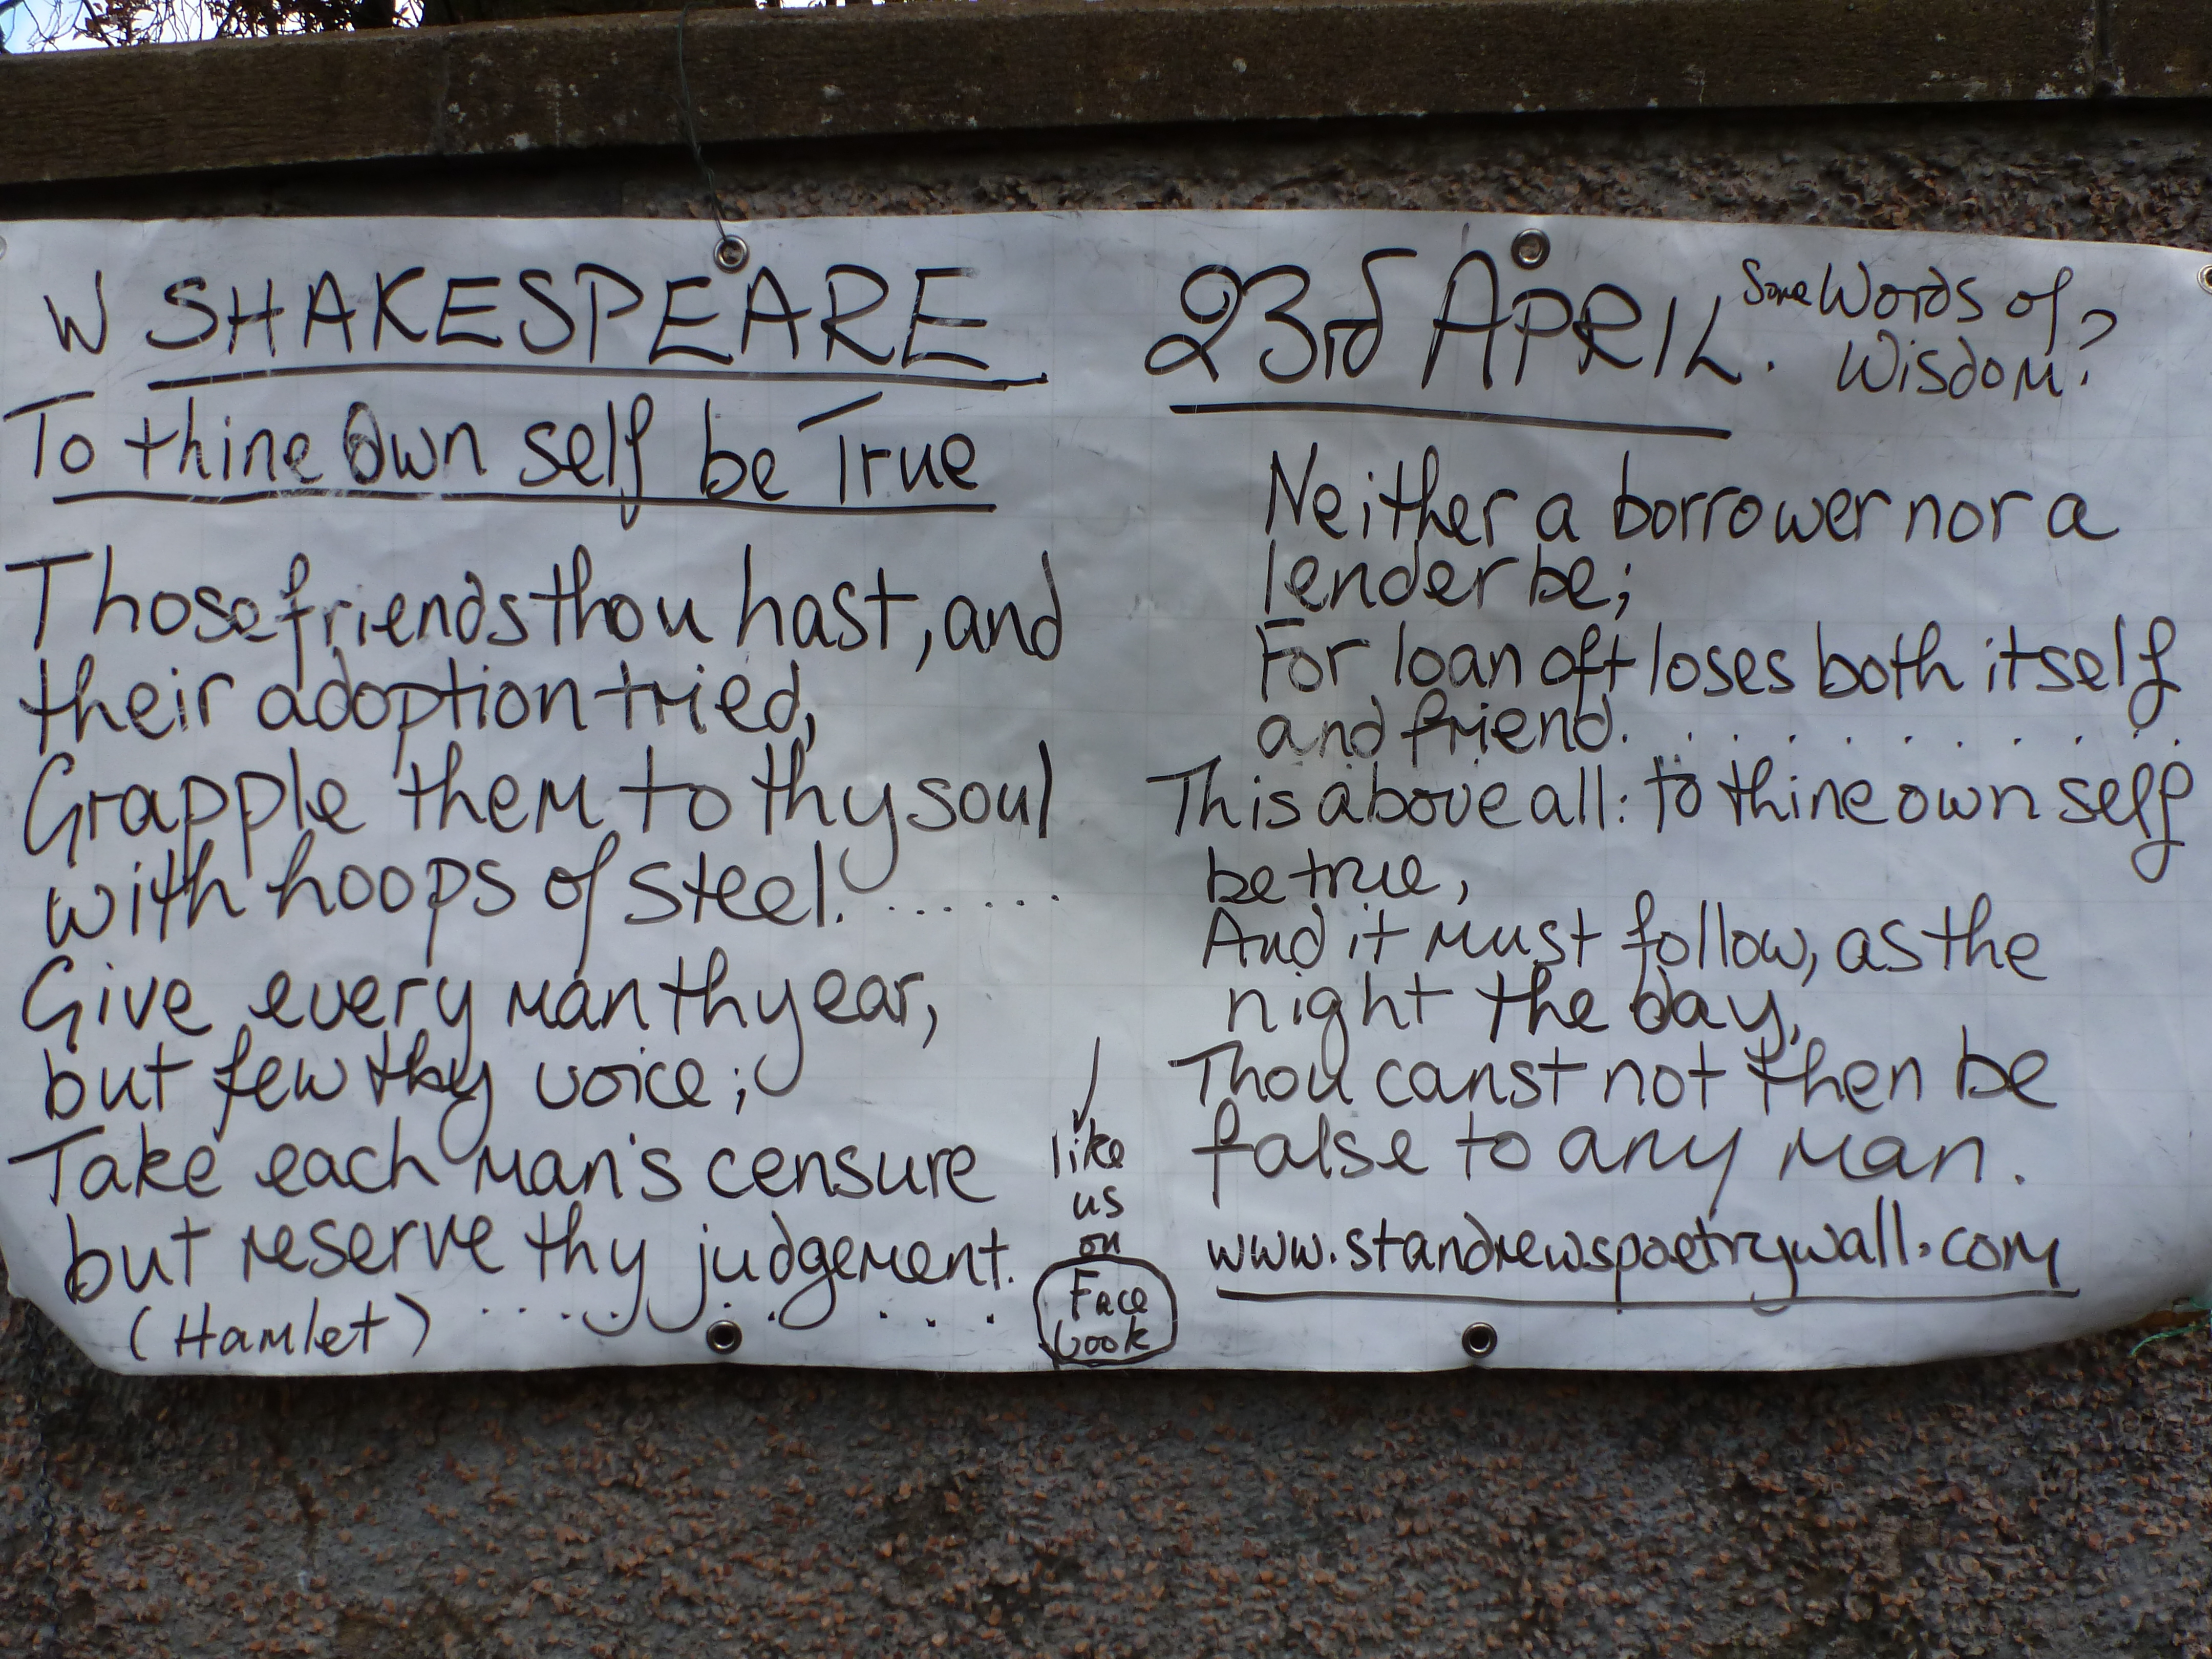 W SHAKESPEARE
To thine Own self be True
Those friends thou hast, and
their adoption tried,
Grapple them to thy soul
with hoops of steel. .......
Give every man thy ear,
but few thy voice;
Take each man's censure
but reserve thy judgement.
(Hamlet) ..........
like
us
on
Face
book
23rd APRIL.
Some Words of
Wisdom?
Neither a borrower nor a
lender be;
For loan oft loses both itself
and friend. ..........
This above all: to thine own self
be true,
And it must follow, as the
night the day,
Thou canst not then be
false to any man.
www.standrewspoetrywall.com